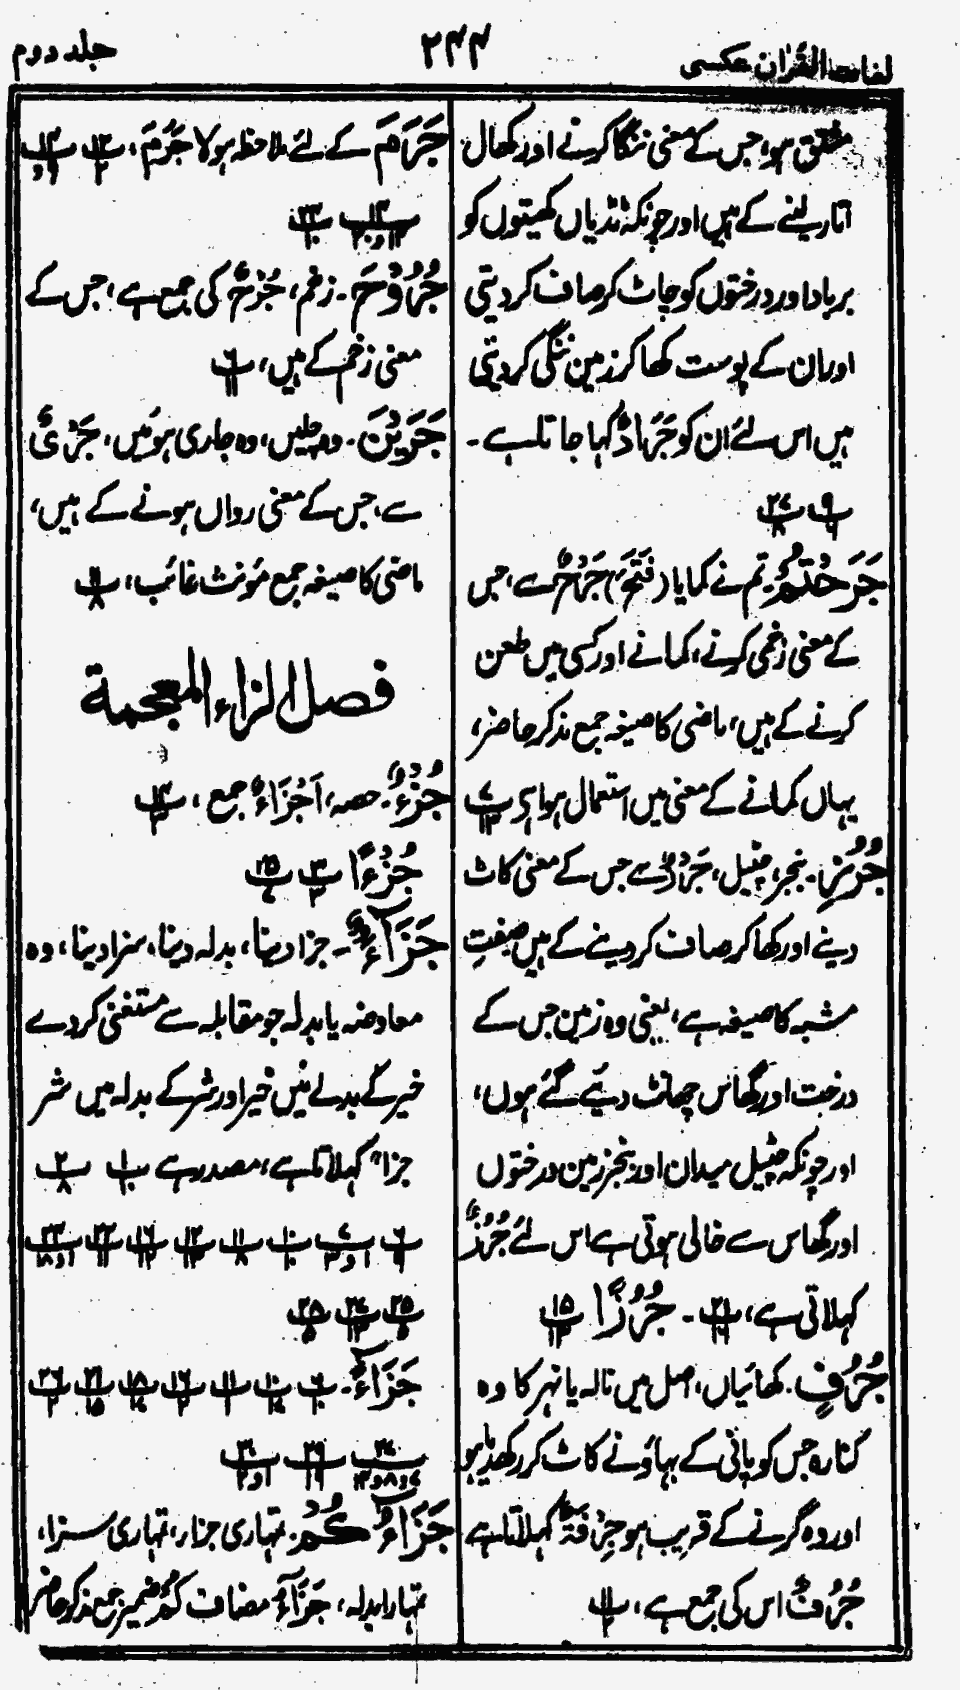 لغات القرآن عکسی
۲۴۴
جلد دوم
مشتق ہو، جس کے معنی ننگا کرنے اور کھال
اتار لینے کے ہیں اور چونکہ ٹڈیاں کھیتوں کو
برباد اور درختوں کو چاٹ کر صاف کر دیتی
اور ان کے پوست کھا کر زمین ننگی کر دیتی
ہیں اس لئے ان کو جَرَادٌ کہا جاتا ہے ۔
پ۹ پ۲۷
جَرَحْتُمْ ۔ تم نے کمایا (فَتَحَ) جَرْحٌ سے، جس
کے معنی زخمی کرنے، کمانے اور کسی میں طعن
کرنے کے ہیں، ماضی کا صیغہ جمع مذکر حاضر،
یہاں کمانے کے معنی میں استعمال ہوا ہے پ۷
جُرُزٍ ۔ بنجر، چٹیل، جَرْزٌ سے جس کے معنی کاٹ
دینے اور کھا کر صاف کر دینے کے ہیں صفت
مشبہ کا صیغہ ہے، یعنی وہ زمین جس کے
درخت اور گھاس چھانٹ دیئے گئے ہوں،
اور چونکہ چٹیل میدان اور بنجر زمین درختوں
اور گھاس سے خالی ہوتی ہے اس لئے جُرُزٌ
کہلاتی ہے، پ۲۱ ۔ جُرُزًا پ۱۵
جُرُفٍ ۔ کھائیاں، اصل میں نالہ یا نہر کا وہ
کنارہ جس کو پانی کے بہاؤ نے کاٹ کر رکھدیا ہو
اور وہ گرنے کے قریب ہو جِرْفَةٌ کہلاتا ہے
جُرُفٌ اس کی جمع ہے، پ۱۱
جَرَامَ کے لئے ملاحظہ ہو لا جَرَمَ، پ۱۲ پ۱۴
پ۱۴ پ۲۴
جُرُوْحَ ۔ زخم، جُرْحٌ کی جمع ہے، جس کے
معنی زخم کے ہیں، پ۶
جَرَيْنَ ۔ وہ چلیں، وہ جاری ہوئیں، جَرْیٌ
سے، جس کے معنی رواں ہونے کے ہیں،
ماضی کا صیغہ جمع مؤنث غائب، پ۱۱
فصل الزاء المعجمة
جُزْءٌ ۔ حصہ، اَجْزَاءٌ جمع، پ۱۴
جُزْءًا پ۳ پ۲۵
جَزَآءً ۔ جزا دینا، بدلہ دینا، سزا دینا، وہ
معاوضہ یا بدلہ جو مقابلہ سے مستغنی کر دے
خیر کے بدلے میں خیر اور شر کے بدلہ میں شر
جزاء کہلاتا ہے، مصدر ہے پ۱ پ۲
پ۶ پ۷ پ۱۰ پ۱۱ پ۱۳ پ۱۶ پ۲۲ پ۲۳
پ۲۵ پ۲۷ پ۲۸
جَزَآءُ ۔ پ۶ پ۱۰ پ۱۱ پ۱۶ پ۱۸ پ۲۱ پ۲۶
پ۲۷ پ۲۹ پ۳۰
جَزَآءُكُمْ ۔ تمہاری جزا، تمہاری سزا،
تمہارا بدلہ، جَزَآءُ مضاف كُمْ ضمیر جمع مذکر حاضر